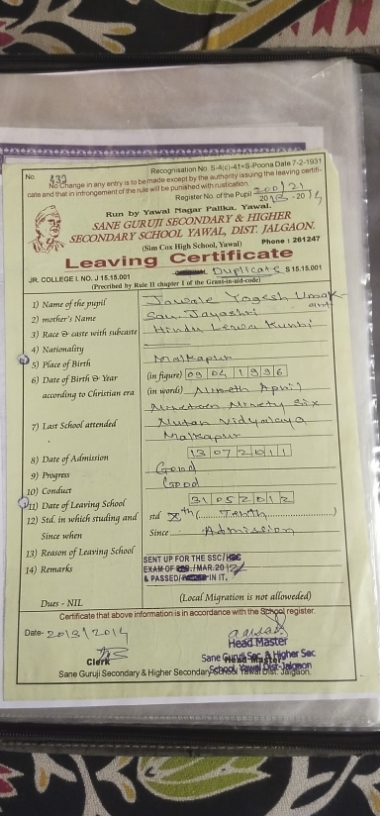 Recognisation No. S-4(c)-41=S-Poona Date 7-2-1931
No. 332
No Change in any entry is to be made except by the authority issuing the leaving certifi-
cate and that in infrongement of the rule will be punished with rustication.
Register No. of the Pupil 200/21
2013-2014
Run by Yawal Nagar Palika, Yawal.
SANE GURUJI SECONDARY & HIGHER
SECONDARY SCHOOL YAWAL, DIST. JALGAON.
(Sim Cox High School, Yawal) Phone : 261247
Leaving Certificate
JR. COLLEGE I. NO. J 15.15.001 Duplicate S 15.15.001
(Prescribed by Rule II chapter 1 of the Grant-in-aid-code)
1) Name of the pupil Jawale Yogesh Umak-
ant
2) mother's Name Sau. Jayashri
3) Race & caste with subcaste Hindu Lewa Kunbi
4) Nationality
5) Place of Birth Malkapur
6) Date of Birth & Year (in figure) 09 04 1996
according to Christian era (in words) Nineth April
Nineteen Ninety Six
7) Last School attended Nutan Vidyalaya
Malkapur
8) Date of Admission 13 07 2011
9) Progress Good
10) Conduct Good
11) Date of Leaving School 31 05 2012
12) Std. in which studing and std Xth (Tenth)
Since when Since : Admission
13) Reason of Leaving School SENT UP FOR THE SSC/HSC
14) Remarks EXAM OF MAR. 2012
& PASSED IN IT.
Dues - NIL (Local Migration is not alloweded)
Certificate that above information is in accordance with the School register.
Date- 20/3/2014
Head Master
Clerk Sane Guruji Sec. & Higher Sec.
Head Master
School, Yawal Dist-Jalgaon
Sane Guruji Secondary & Higher Secondary School Yawal Dist. Jalgaon.